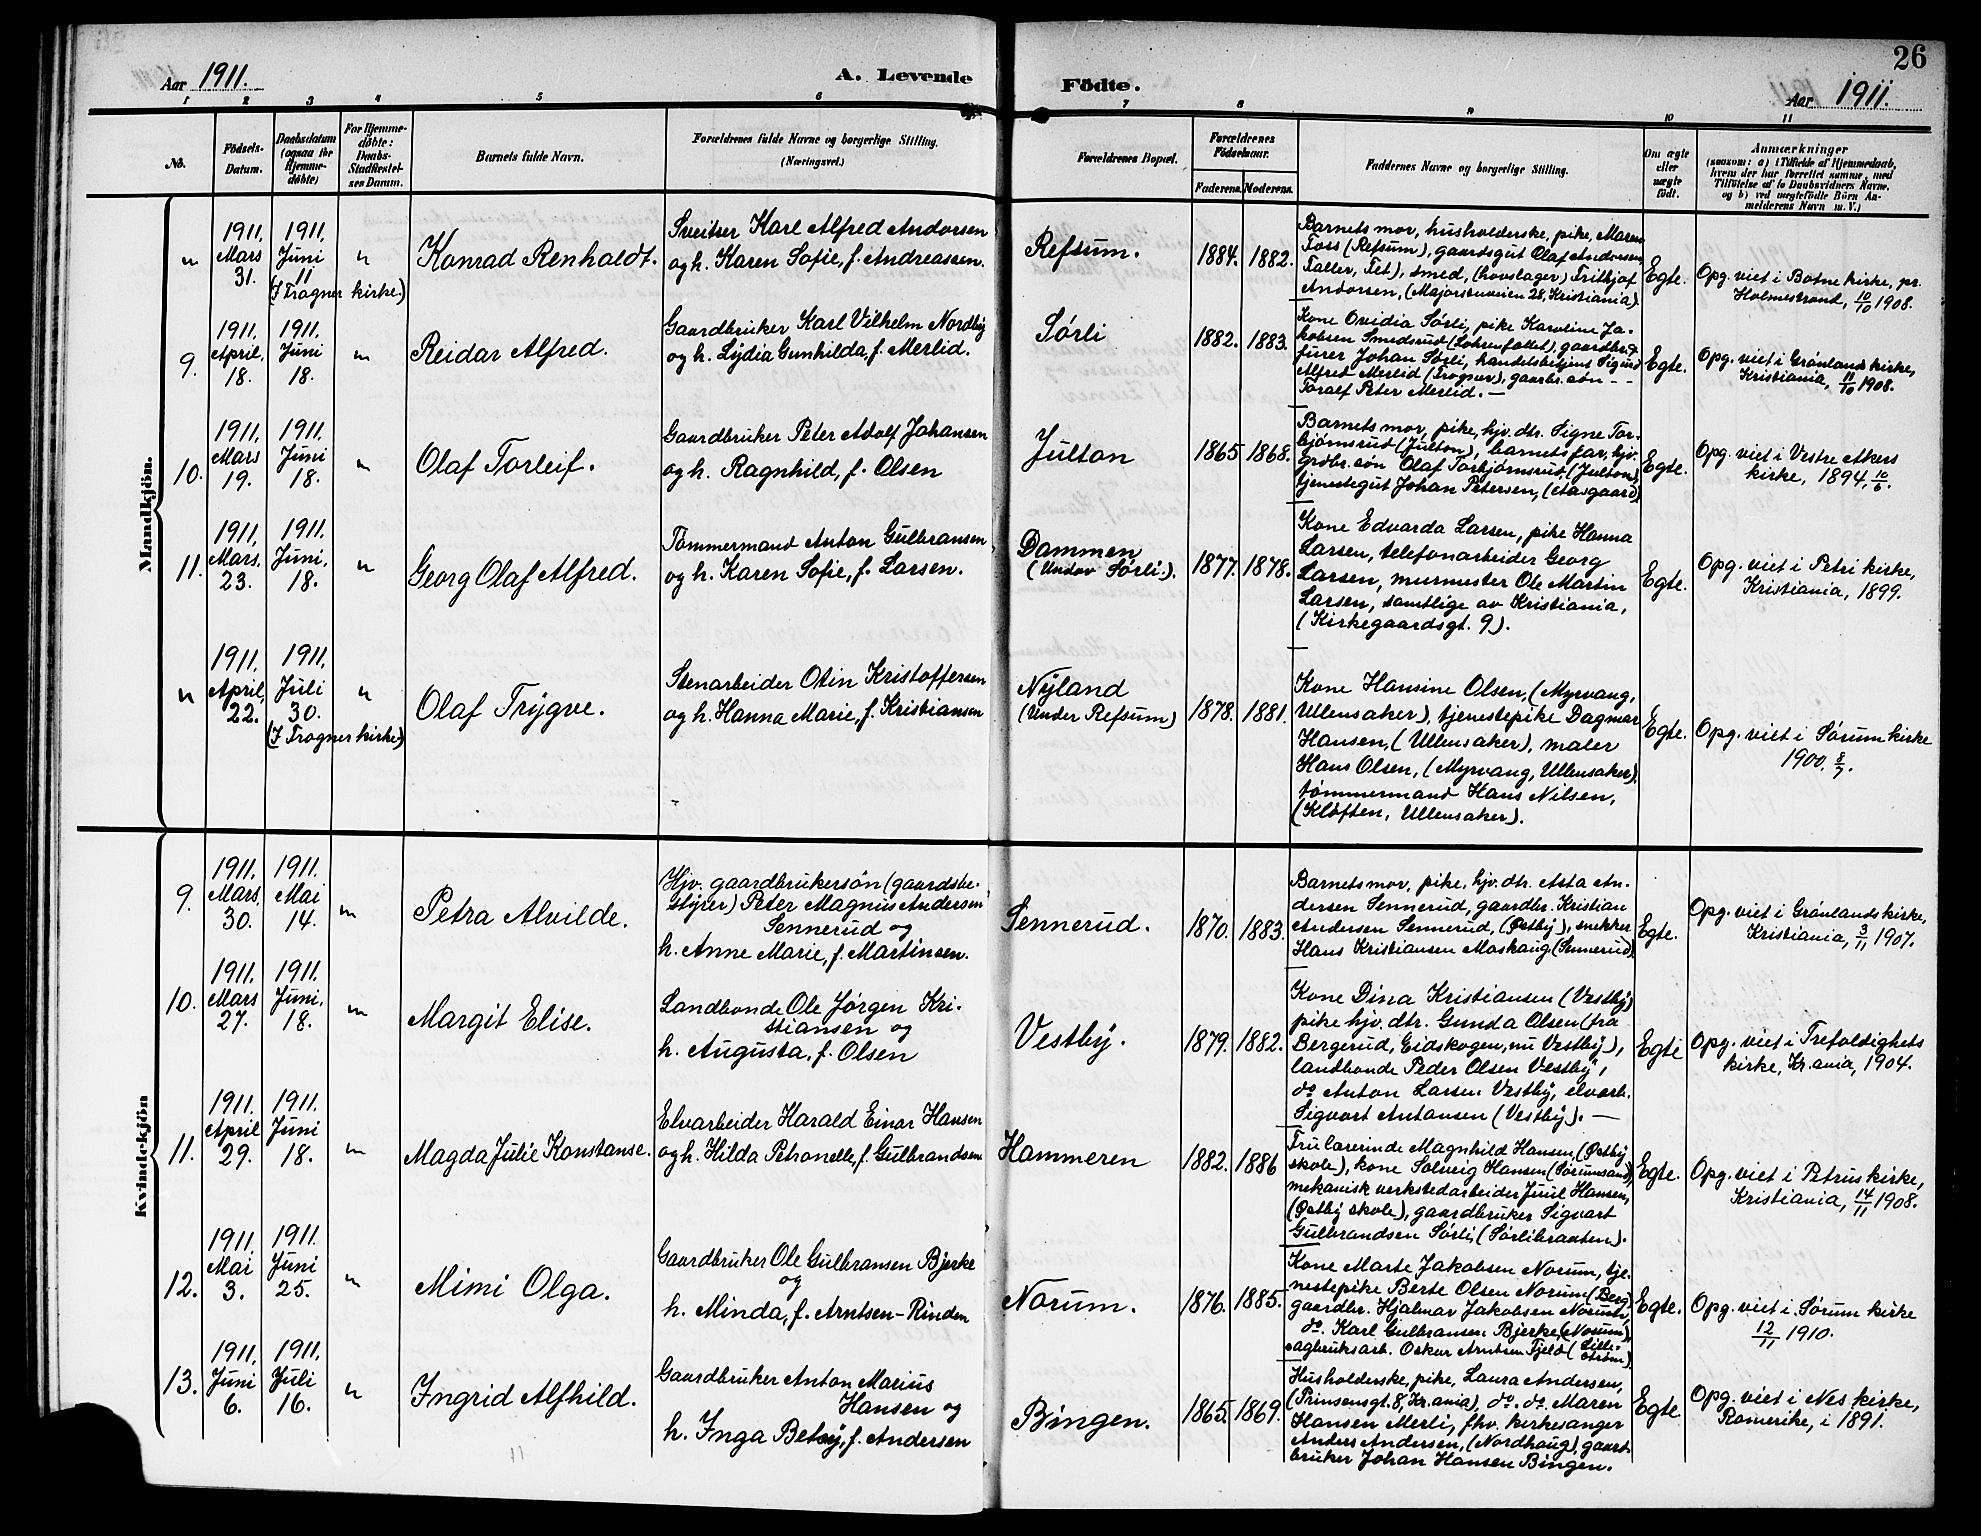 26
Aar 1911.
A. Levende Födte.
Aar 1911.
1 2 3 4 5 6 7 8 9 10 11
No.
Födsels-
Datum.
Daabsdatum
(ogsaa for
Hjemme-
døbte)
For Hjemme-
døbte:
Daabs-
Stadfestel-
ses Datum.
Barnets fulde Navn.
Forældrenes fulde Navne og borgerlige Stilling.
(Næringsvei.)
Forældrenes Bopæl.
Forældrenes
Födselsaar.
Faderens. Moderens.
Faddernes Navne og borgerlige Stilling.
Om ægte
eller
uægte
født.
Anmærkninger
(saasom: a) i Tilfælde af Hjemmedaab,
hvem der har forrettet samme, med
Tilføielse af to Daabsvidners Navne,
og b) ved uægtefødte Börn An-
melderens Navn m. V.)
Mandkjön.
"
1911.
Mars
31.
1911.
Juni
11
(I Trogner kirke)
"
Konrad Renholdt.
Sveitser Karl Alfred Andorsen
og h. Karen Sofie, f. Andreassen.
Refsum.
1884. 1882.
Barnets mor, husholderske, pike, Maren
Foss (Refsum), gaardsgut Olaf Andorsen
Faller, Fet), smed, (hovslager) Frithjof
Andorsen, (Majorstuveien 28, Kristiania)
Egte.
Opg. viet i Botne kirke, pr.
Holmestrand, 10/10 1908.
9.
1911.
April,
18.
1911.
Juni
18.
"
Reidar Alfred.
Gaardbruker Karl Vilhelm Nordby
og h. Lydia Gunhilda, f. Merlid.
Sørli
1882. 1883.
Kone Ovidia Sørli, pike Karoline Ja-
kobsen Smedsrud
Johan Sørli, handelsbetjent Sigurd
Alfred Merlid (Trogner), gaardbr. søn - -
Toralf Peter Merlid. —
Egte.
Opg. viet i Grønlands kirke,
Kristiania, 11/10 1908.
10.
1911.
Mars
19.
1911.
Juni
18.
"
Olaf Torleif.
Gaardbruker Peter Adolf Johansen
og h. Ragnhild, f. Olsen
Julton
1865 1868.
Barnets mor, pike, hjv. dtr. Signe Tor-
bjørnsrud (Julton), barnets far, hjv.
grdbr. søn Olaf Torbjørnsrud, (Julton),
tjenestegut Johan Petersen, (Aasgaard)
Egte.
Opg. viet i Vestre Akers
kirke, 1894, 10/6.
11.
1911,
Mars,
23.
1911.
Juni,
18.
"
Georg Olaf Alfred.
Tømmermand Anton Gulbransen
og h. Karen Sofie, f. Larsen.
Dammen
(Under Sørli).
1877. 1878.
Kone Edvarda Larsen, pike Hanna
Larsen, telefonarbeider Georg
Larsen, murmester Ole Martin
Larsen, samtlige av Kristiania,
(Kirkegaardsgt. 9).
Egte.
Opg. viet i Petri kirke,
Kristiania, 1899.
"
1911.
April,
22.
1911.
Juli
30.
(I Trogner kirke)
"
Olaf Trygve.
Stenarbeider Otin Kristoffersen
og h. Hanna Marie, f. Kristiansen
Nyland
(Under Refsum)
1878. 1881.
Kone Hansine Olsen, (Myrvang,
Ullensaker), tjenestepike Dagmar
Hansen, (Ullensaker), maler
Hans Olsen, (Myrvang, Ullensaker),
tømmermand Hans Nilsen,
(Kløften, Ullensaker).
Egte.
Opg. viet i Sørum kirke
1900. 8/7.
Kvindekjön
9.
1911.
Mars,
30.
1911.
Mai
14.
"
Petra Alvilde.
Hjv. gaardbrukersøn (gaardsbe-
styrer) Peter Magnus Andersen
Sennerud og
h. Anne Marie, f. Martinsen.
Sennerud.
1870. 1883.
Barnets mor, pike, hjv. dtr. Asta An-
dersen Sennerud, gaardbr. Kristian
Andersen Sennerud, (Østby), snekker
Hans Kristiansen Moskaug (Sennerud)
Egte.
Opg. viet i Grønlands kirke,
Kristiania, 3/11 1907.
10.
1911.
Mars
27.
1911.
Juni,
18.
"
Margit Elise.
Landbonde Ole Jørgen Kri-
stiansen og
h. Augusta, f. Olsen
Vestby.
1879. 1882.
Kone Dina Kristiansen (Vestby)
pike hjv. dtr. Gunda Olsen (fra
Bergerud, Eidskogen, nu Vestby),
landbonde Peder Olsen Vestby,
do Anton Larsen Vestby, elvarb.
Sigvart Antonsen (Vestby). —
Egte
Opg. viet i Trefoldighets
kirke, Kr.ania, 1904.
11.
1911.
April
29.
1911.
Juni
18.
"
Magda Julie Konstanse.
Elvarbeider Harald Einar Hansen
og h. Hilda Petronelle, f. Gulbrandsen
Hammeren
1882. 1886
Fru lærerinde Magnhild Hansen, (Østby
skole), kone Solveig Hansen (Sørumsand),
mekanisk verkstedarbeider Juul Hansen,
(Østby skole), gaardbruker Sigvart
Gulbrandsen Sørli, (Sørlibraaten).
Egte.
Opg. viet i Petrus kirke,
Kristiania, 14/11 1908.
12.
1911.
Mai
3.
1911.
Juni
25.
"
Mimi Olga.
Gaardbruker Ole Gulbransen Bjerke
og
h. Minda, f. Arntsen-Rinden
Norum.
1876. 1885.
Kone Marte Jakobsen Norum, tje-
nestepike Berte Olsen Norum (Berg)
gaardbr. Hjalmar Jakobsen Norum,
do. Karl Gulbransen Bjerke, (Norum),
sagbruksarb. Oskar Arntsen Fjeld (Lille-
strøm)
Egte.
Opg. viet i Sørum kirke
12/11 1910.
13.
1911.
Juni
6.
1911.
Juli
16.
"
Ingrid Alfhild.
Gaardbruker Anton Marius
Hansen og
h. Inga Betsy, f. Andersen
Bingen.
1865. 1869.
Husholderske, pike, Laura Andersen,
(Prinsensgt. 8, Kr.ania), do. do. Maren
Hansen Merli, fhv. kirkesanger
Anders Andersen, (Nordhaug), gaard-
bruker Johan Hansen Bingen.
Egte.
Opg. viet i Nes kirke,
Romerike, i 1891.